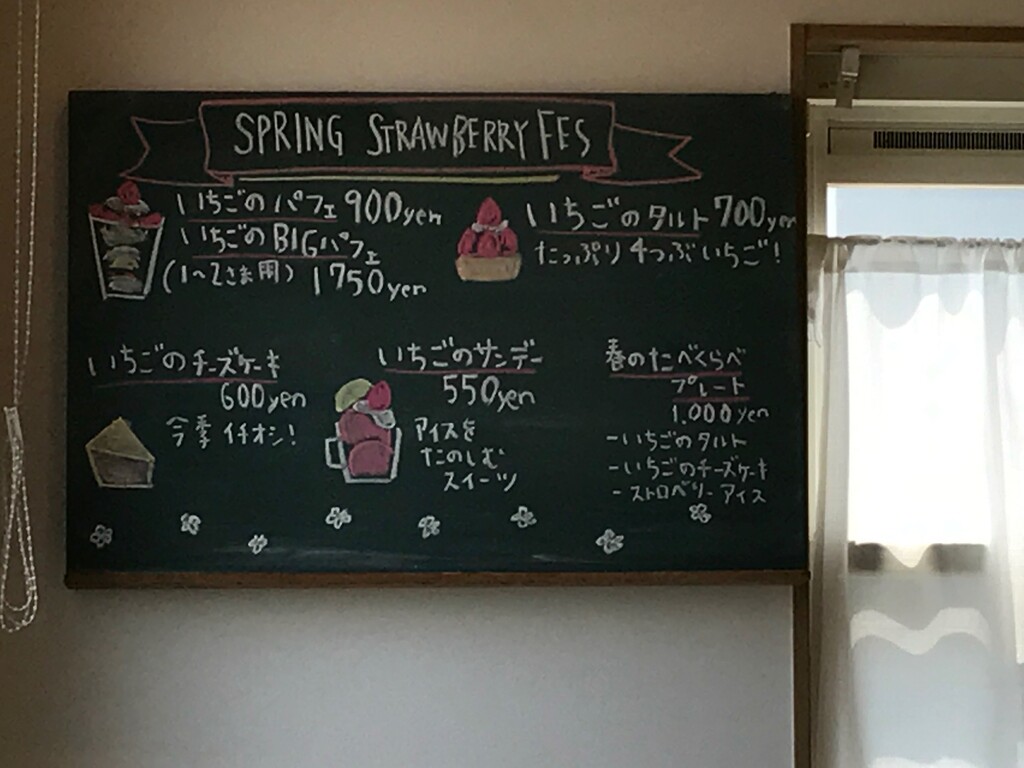 SPRING STRAWBERRY FES
いちごのパフェ 900yen
いちごのBIGパフェ
(1〜2さま用) 1750yen
いちごのタルト 700yen
たっぷり4つぶいちご!
いちごのチーズケーキ
600yen
今季イチオシ!
いちごのサンデー
550yen
アイスを
たのしむ
スイーツ
春のたべくらべ
プレート
1.000yen
-いちごのタルト
-いちごのチーズケーキ
-ストロベリーアイス